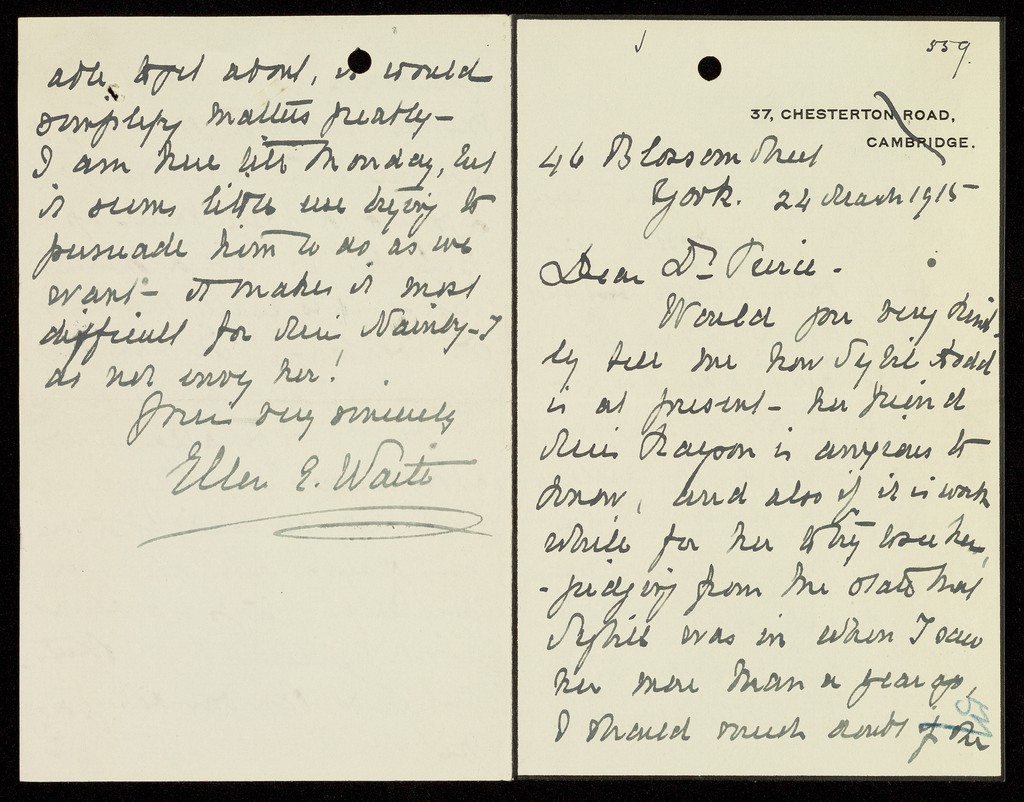 559.
37, CHESTERTON ROAD,
CAMBRIDGE.
46 Blossom Street
York. 24 March 1915
Dear Dr Peirce.
Would you very kind-
ly tell me how Sybil Todd
is at present - her friend
Miss is anxious to
know, and also if it is worth
while for her to try to see her,
- judging from the state that
Sybil was in when I saw
her more than a year ago,
I should much doubt if she
able to get about, it would
simplify matters greatly -
I am here till Monday, but
it seems little use trying to
persuade him to do as we
want - it makes it most
difficult for Miss - I
do not envy her!
Yours very sincerely
Ellen E. Waite